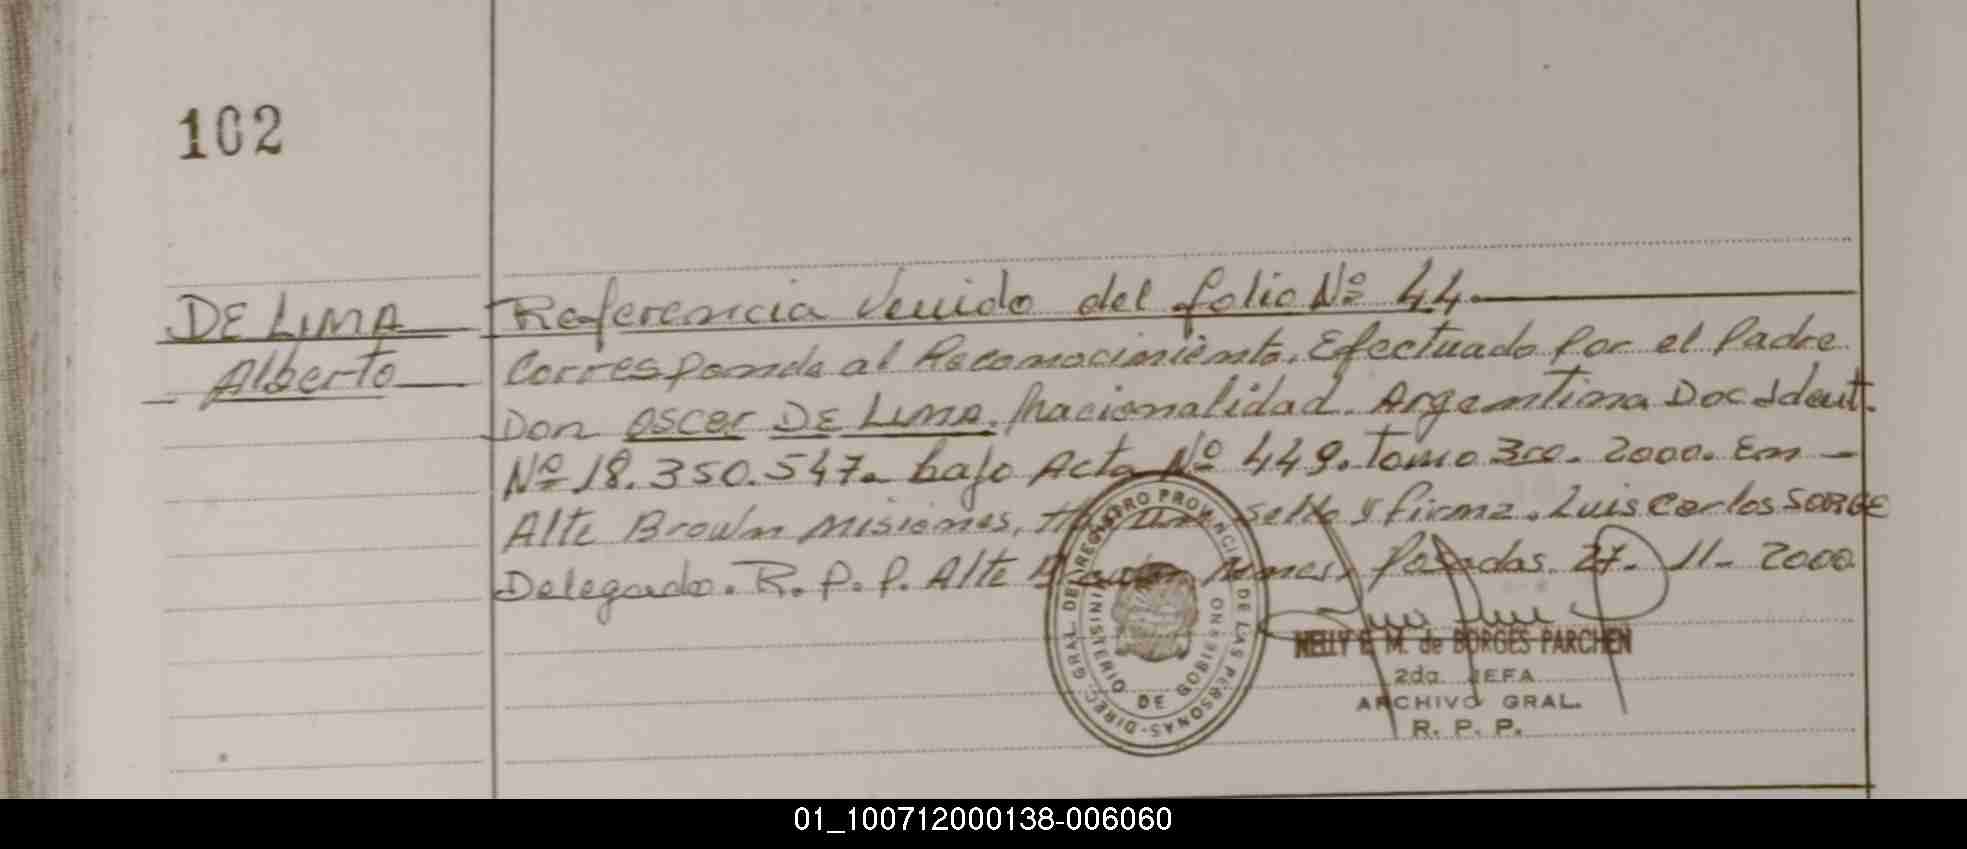 102
DE LIMA
Alberto
Referencia Venido del folio Nº 44.
Corresponde al Reconocimiento. Efectuado por el Padre
Don Oscar DE LIMA. Nacionalidad. Argentina Doc Ident.
Nº 18.350.547. bajo Acta Nº 449. Tomo 3ro. 2000. En
Alte Brown Misiones, sello y firma. Luis Carlos SORGE
Delegado. R. P. P. Alte Posadas. 27- 11- 2000
DIREC. GRAL. DEL REGISTRO PROVINCIAL DE LAS PERSONAS
MINISTERIO DE GOBIERNO
NELLY E. M. de BORGES PARCHEN
2da JEFA
ARCHIVO GRAL.
R. P. P.
01_100712000138-006060